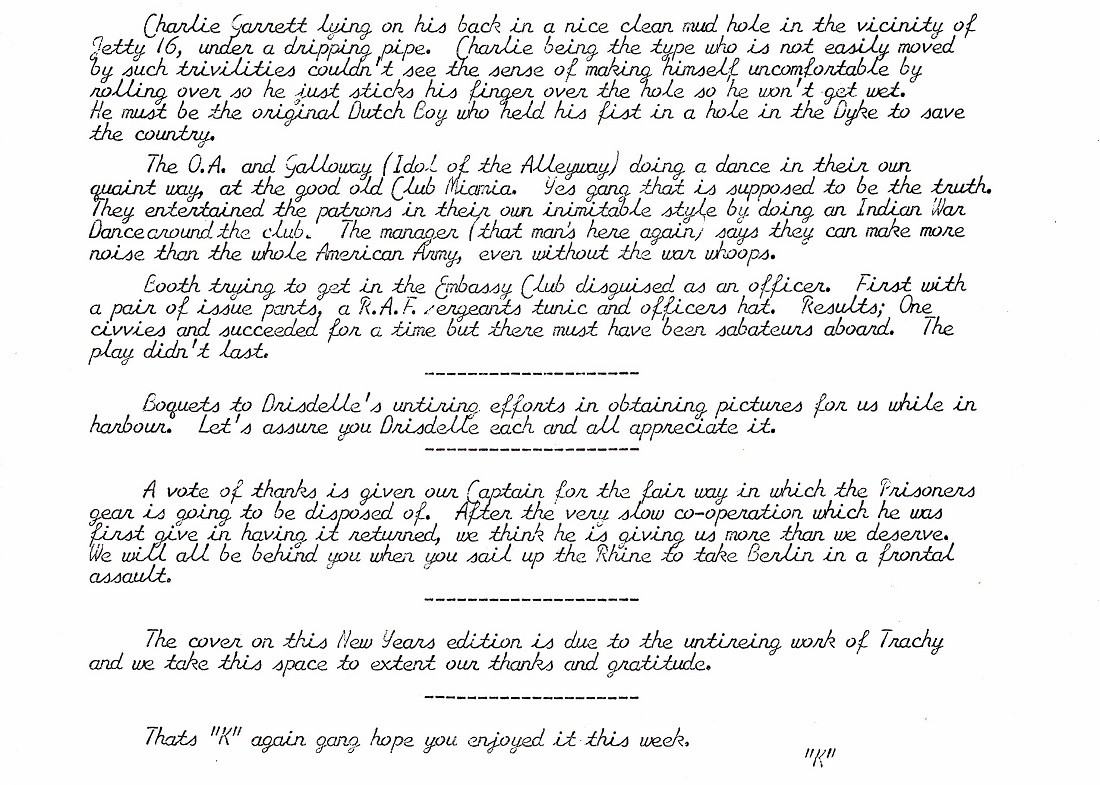 Charlie Garrett lying on his back in a nice clean mud hole in the vicinity of
Jetty 16, under a dripping pipe. Charlie being the type who is not easily moved
by such trivilities couldn't see the sense of making himself uncomfortable by
rolling over so he just sticks his finger over the hole so he won't get wet.
He must be the original Dutch Boy who held his fist in a hole in the Dyke to save
the country.
The O.A. and Galloway (Idol of the Alleyway) doing a dance in their own
quaint way, at the good old Club Miamia. Yes gang that is supposed to be the truth.
They entertained the patrons in their own inimitable style by doing an Indian War
Dance around the club. The manager (that man's here again) says they can make more
noise than the whole American Army, even without the war whoops.
Booth trying to get in the Embassy Club disguised as an officer. First with
a pair of issue pants, a R.A.F. sergeants tunic and officers hat. Results; One
civvies and succeeded for a time but there must have been sabateurs aboard. The
play didn't last.
--------------------
Boquets to Drisdelle's untiring efforts in obtaining pictures for us while in
harbour. Let's assure you Drisdelle each and all appreciate it.
--------------------
A vote of thanks is given our Captain for the fair way in which the Prisoners
gear is going to be disposed of. After the very slow co-operation which he was
first give in having it returned, we think he is giving us more than we deserve.
We will all be behind you when you sail up the Rhine to take Berlin in a frontal
assault.
--------------------
The cover on this New Years edition is due to the untireing work of Trachy
and we take this space to extent our thanks and gratitude.
--------------------
Thats "K" again gang hope you enjoyed it this week.
"K"